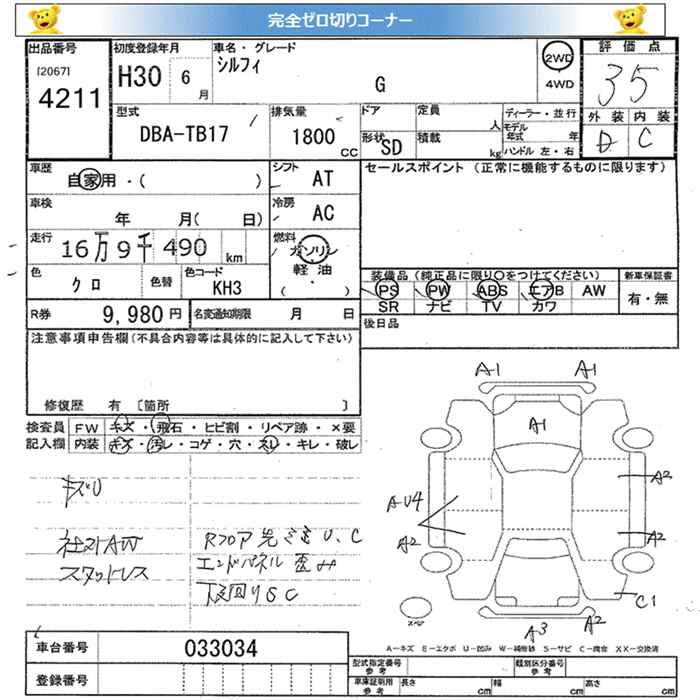 完全ゼロ切りコーナー
出品番号 初度登録年月 車名・グレード 評価点
[2067] シルフィ 2WD
4211 H30 6 月 G 4WD 35
型式 排気量 ドア 定員 ディーラー・並行 外装 内装
DBA-TB17 1800 CC 形状 SD 積載 人 kg モデル年式 年 ハンドル 左・右 D C
車歴 自家用・( ) シフト AT セールスポイント (正常に機能するものに限ります)
車検 年 月( 日) 冷房 AC
走行 16万9千490 km 燃料 ガソリン 軽油 ( ・ )
色 クロ 色替 色コード KH3
装備品(純正品に限り○をつけてください) 新車保証書
PS PW ABS エアB AW 有・無
SR ナビ TV カワ
R券 9,980円 名変通知期限 月 日 後日品
注意事項申告欄(不具合内容等は具体的に記入して下さい)
修復歴 有 [箇所 ]
検査員 FW キズ・飛石・ヒビ割・リペア跡・×要
記入欄 内装 キズ・汚レ・コゲ・穴・スレ・キレ・破レ
キズU
社外AW
スタッドレス
Rフロア先 U、C
エンドパネル歪み
下回りSC
A1 A1
A1
AU4 A2
A2 A2
C1
スペア A3 A2
A=キズ E=エクボ U=凹み W=補修跡 S=サビ C=腐食 XX=交換済
車台番号 033034
登録番号
型式指定番号 参考 類別区分番号 参考
車庫証明用 参考 長さ cm 幅 cm 高さ cm